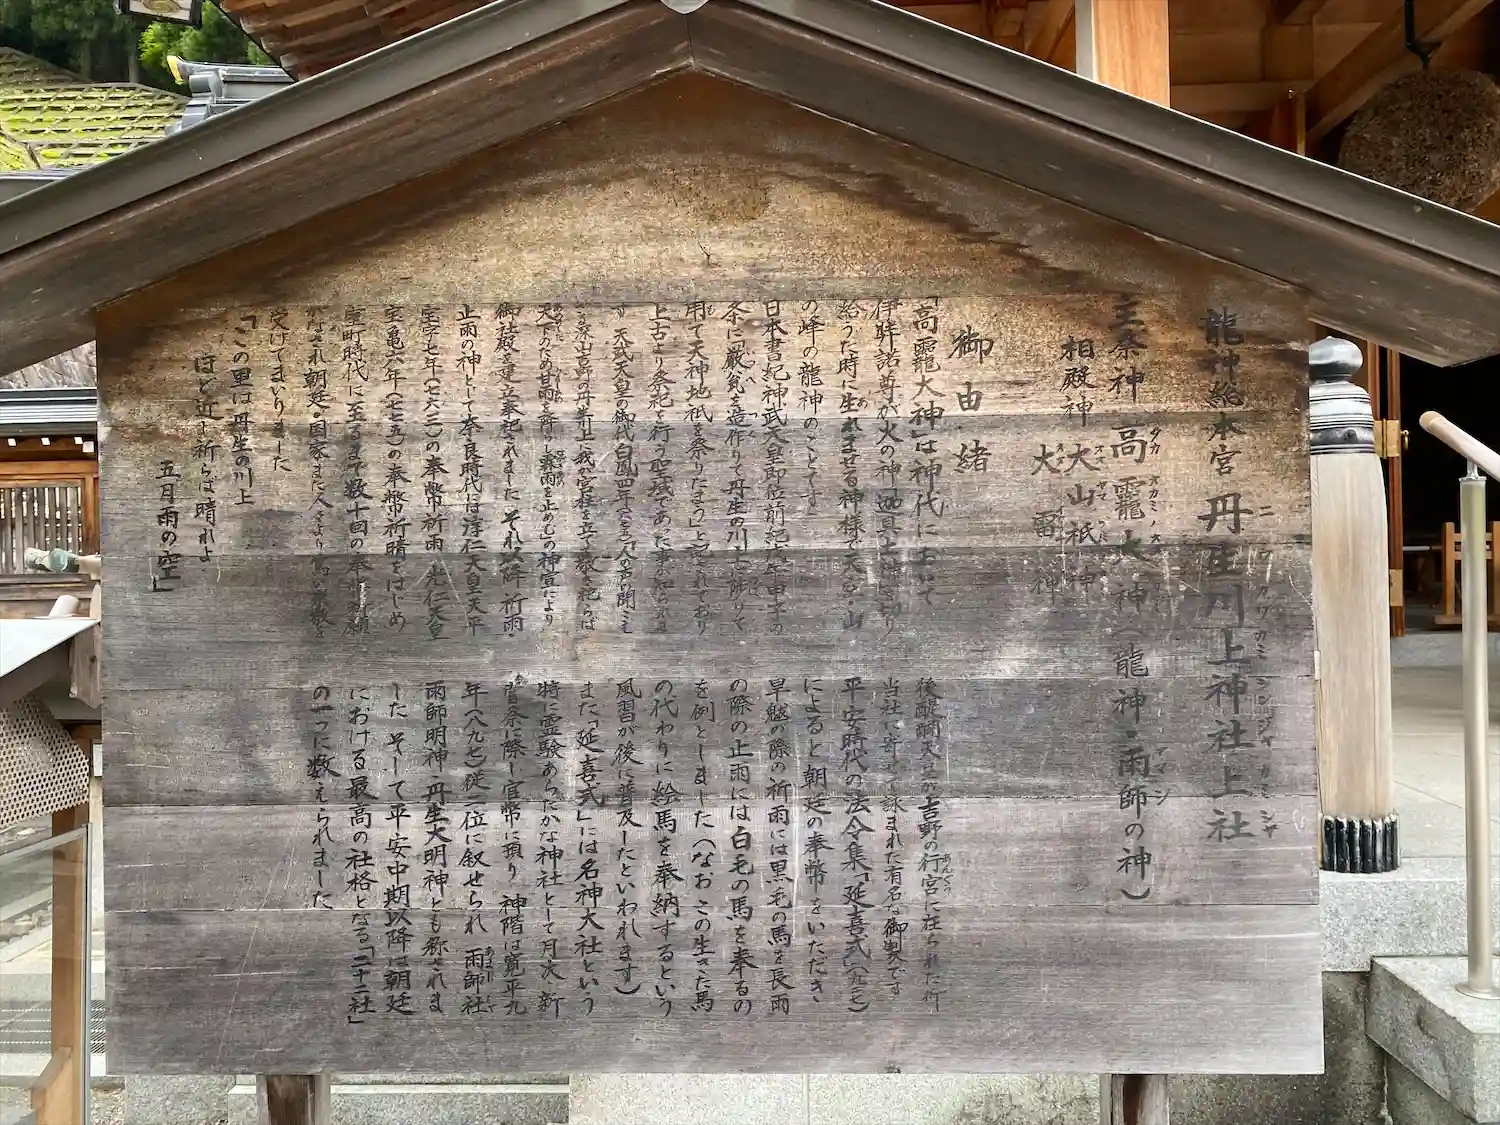 龍神総本宮 丹生川上神社上社
ニ ウ カワ カミ ジンジャ カミ シャ
主祭神 高龗大神(龍神・雨師の神)
タカ オカミ ノ オオ
アマ シ
相殿神 大山祇神
オオ ヤマ
大 雷 神
御由緒
「高龗大神」は神代において
伊弉諾尊が火の神
給うた時に生れませる神様で天
の峰の龍神のことです
日本書紀神武天皇即位前紀戊午
条に「厳瓮を造作りて丹生の川上に陟りて
用て天神地祇を祭りたまう」と記されており
上古より祭祀を行う聖域であった事が
天武天皇の御代白鳳四年
吉野の丹生川上に我が宮柱を立て敬き祀らば
天下のため甘雨を降らし霖雨を止めむ」の神宣により
御社殿を建立奉祀されました それ以降祈雨・
止雨の神として奈良時代は淳仁天皇天平
宝字七年(七六三)の奉幣祈雨 光仁天皇
宝亀六年(七七五)の奉幣祈晴をはじめ
室町時代に至るまで数十回の奉幣祈願
がなされ朝廷・国家また人々より篤い崇敬を
受けてまいりました
「この里は丹生の川上
ほど近し祈らば晴れよ
五月雨の空」
後醍醐天皇が吉野の行宮に在られた折
当社に寄せて詠まれた有名な御製です
平安時代の法令集「延喜式」(九二七)
によると朝廷の奉幣をいただき
旱魃の際の祈雨には黒毛の馬を長雨
の際の止雨には白毛の馬を奉るの
を例としました(なおこの生きた馬
の代わりに絵馬を奉納するという
風習が後に普及したといわれます)
また「延喜式」には名神大社という
特に霊験あらたかな神社として月次・新
嘗祭に際し官幣に預り 神階は寛平九
年(八九七)従二位に叙せられ 雨師社
雨師明神・丹生大明神とも称されま
した そして平安中期以降は朝廷
における最高の社格となる「二十二社」
の一つに数えられました